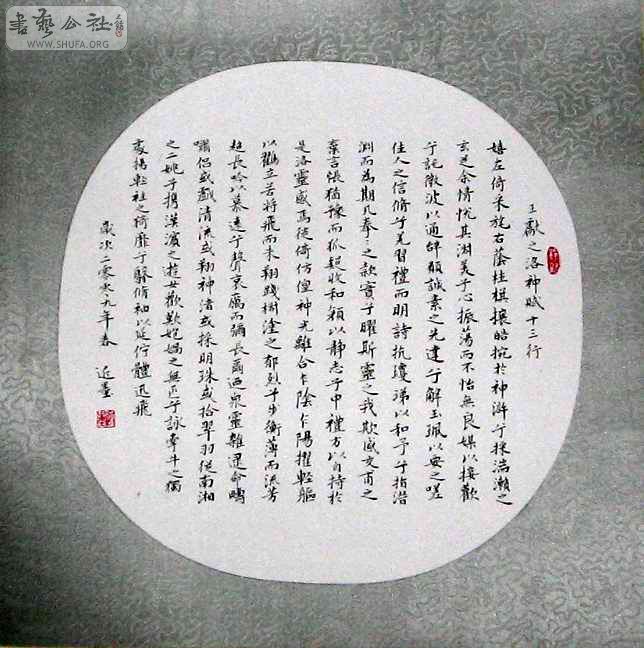 書藝公社
WWW.SHUFA.ORG
王獻之洛神賦十三行
嬉左倚采旄右蔭桂旗攘皓捥於神滸兮採湍瀨之
玄芝余情悅其淑美兮心振蕩而不怡無良媒以接歡
兮託微波以通辭願誠素之先達兮解玉珮以要之嗟
佳人之信脩兮羌習禮而明詩抗瓊珶以和予兮指潛
淵而為期執拳拳之款實兮懼斯靈之我欺感交甫之
棄言悵猶豫而狐疑收和顏以靜志兮申禮防以自持於
是洛靈感焉徙倚仿偟神光離合乍陰乍陽擢輕軀
以鶴立若將飛而未翔踐椒塗之郁烈兮步蘅薄而流芳
超長吟以慕遠兮聲哀厲而彌長爾迺衆靈雜遝命疇
嘯侶或戲清流或翔神渚或採明珠或拾翠羽從南湘
之二姚兮攜漢濱之遊女歎匏媧之無匹兮詠牽牛之獨
處揚輕袿之猗靡兮翳脩袖以延佇體迅飛
歲次二零零九年春 近墨